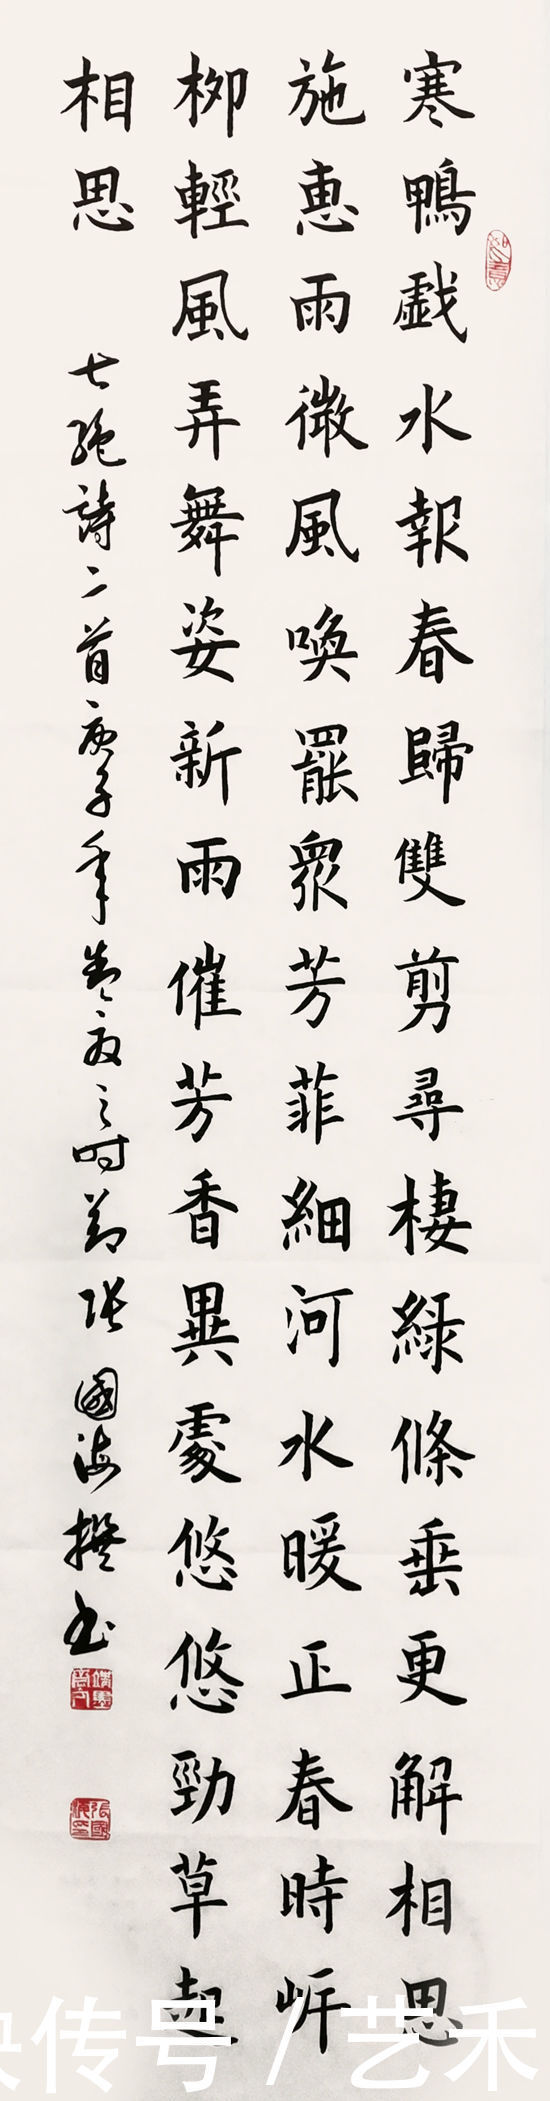 寒鴨戯水報春歸雙剪尋棲綠條垂更解相思
施恵雨微風喚罷衆芳菲細河水暖正春時岸
柳輕風弄舞姿新雨催芳香異處悠悠勁草起
相思
七绝詩二首庚子年之时节張國海撰书
張國海印
快传号 / 艺禾